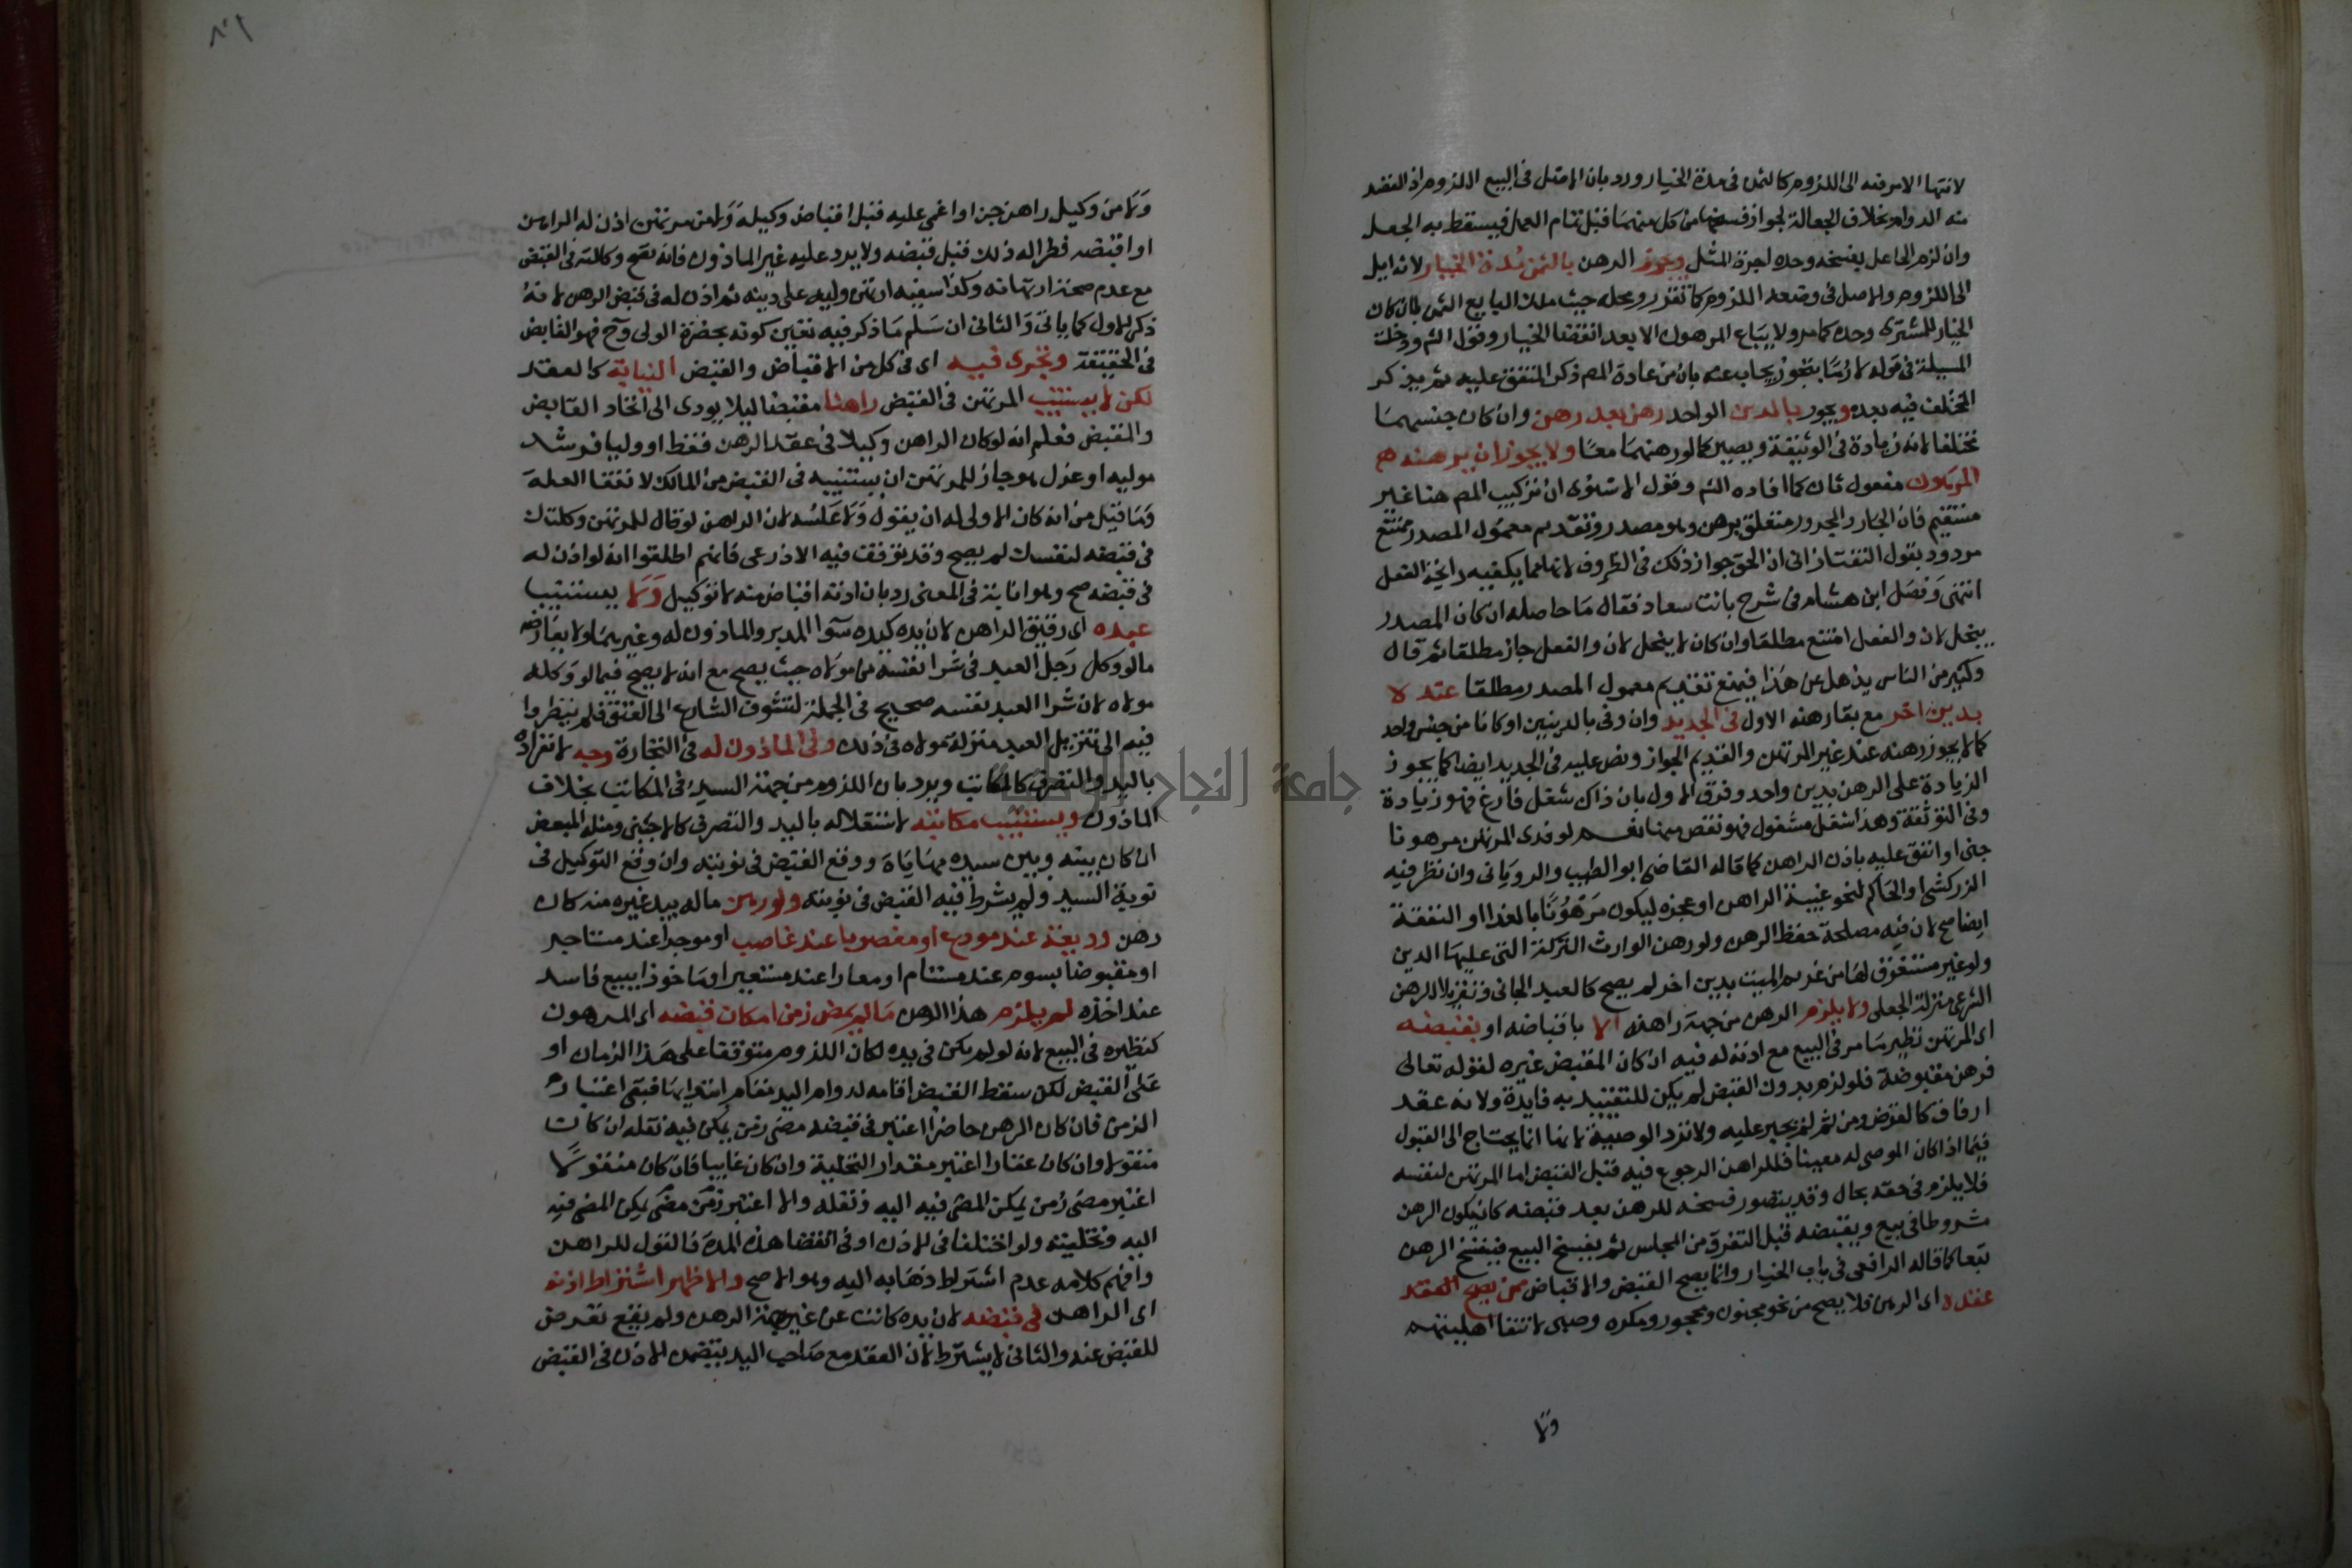 لانتها الامر فيه الى اللزوم كالثمن في مدة الخيار ورد بان الامثل في البيع اللزوم اذ القصد
منه الدوام بخلاف الجعالة لجواز فسخها من كل منهما قبل تمام العمل فيسقط به الجعل
وان لزم الجاعل بفسخه وحده اجرة المثل ويجوز الرهن بالثمن مدة الخيار لانه ايل
الى اللزوم والاصل في وضعه اللزوم كما تقرر ومحله حيث ملك البايع الثمن بان كان
الخيار للمشترى وحده كما مر ولا يباع المرهون الا بعد انقضا الخيار وقول الثم ودخلت
المسيلة في قوله لازما بتجوز يجاب عنه بان من عادة المص ذكر المتفق عليه ثم يذكر
المختلف فيه بعده ويجوز بالدين الواحد رهن بعد رهن وان كان جنسهما
مختلفا لانه زيادة في الوثيقة ويصير كما لو رهنهما معا ولا يجوز ان يرهنه هم
المرهون مفعول ثان كما افاده الثم وقول الاسنوى ان تركيب المص هنا غير
مستقيم فان الجار والمجرور متعلق برهن وهو مصدر وتقديم معمول المصدر ممتنع
مردود بقول التفتازاني ان الحق جواز ذلك في الظروف لانها مما يكفيه رايحة الفعل
انتهى وفصل ابن هشام في شرح بانت سعاد فقال ما حاصله ان كان المصدر
ينحل لان والفعل امتنع مطلقا وان كان لا ينحل لان والفعل جاز مطلقا ثم قال
وكثير من الناس يذهل عن هذا فيمنع تقديم معمول المصدر مطلقا عنده لا
بدين اخر مع بقا رهنه الاول في الجديد وان وفي بالدينين او كانا من جنس واحد
كما لا يجوز رهنه عند غير المرتهن والقديم الجواز ونص عليه في الجديد ايضا كما يجوز
الزيادة على الرهن بدين واحد وفرق الاول بان ذاك شغل فارغ فهو زيادة
وفي التوثقة وهذا شغل مشغول فهو نقص منها نعم لو فدى المرتهن مرهونا
جنى او انفق عليه باذن الراهن كما قاله القاضى ابو الطيب والروياني وان نظر فيه
الزركشى او الحاكم لنحو غيبة الراهن او عجزه ليكون مرهونا بالفدا او النفقة
ايضا صح لان فيه مصلحة حفظ الرهن ولو رهن الوارث التركة التى عليها الدين
ولو غير مستغرق لها من غريم الميت بدين اخر لم يصح كالعبد الجاني وتنزيلا للرهن
الشرعى منزلة الجعلى ولا يلزم الرهن من جهة راهنه الا باقباضه او بقبضه
اى المرتهن نظير ما مر في البيع مع اذنه له فيه ان كان المقبض غيره لقوله تعالى
فرهن مقبوضة فلو لزم بدون القبض لم يكن للتقييد به فايدة ولانه عقد
ارفاق كالقرض ومن ثم لم يجبر عليه ولا ترد الوصية لانها انما يحتاج الى القبول
فيما اذا كان الموصى له معينا فللراهن الرجوع فيه قبل القبض اما المرتهن لنفسه
فلا يلزم في حقه بحال وقد يتصور فسخه للرهن بعد قبضه كان يكون الرهن
مشروطا في بيع ويقبضه قبل التفرق من المجلس ثم يفسخ البيع فينفسخ الرهن
تبعا كما قاله الرافعى في باب الخيار وانما يصح القبض والاقباض ممن يصح العقد
عقده اى الرهن فلا يصح من نحو مجنون ومحجور ومكره وصبى لانتفا اهليتهم
ولا
ولا من وكيل راهن جن او اغمى عليه قبل اقباض وكيله ولا من مرتهن اذن له الراهن
او اقبضه فطرا له ذلك قبل قبضه ولا يرد عليه غير الماذون فانه تصح وكالته في القبض
مع عدم صحة ارتهانه وكذا سفيه ارتهن وليه على دينه ثم اذن له في قبض الرهن لانه
ذكر للاول كما ياتى والثانى ان سلم ما ذكر فيه تعين كونه بحضرة الولى وح فهو القابض
في الحقيقة وتجرى فيه اى في كل من الاقباض والقبض النيابة كالعقد
لكن لا يستنيب المرتهن في القبض راهنا مقبضا ليلا يودى الى اتحاد القابض
والمقبض فعلم انه لو كان الراهن وكيلا في عقد الرهن فقط او وليا فرشد
موليه او عزل هو جاز للمرتهن ان يستنيبه في القبض من المالك لانتفا العلة
وما قيل من انه كان الاولى له ان يقول ولا عكسه لان الراهن لو قال للمرتهن وكلتك
في قبضه لنفسك لم يصح وقد توقفت فيه الاذرعى فانهم اطلقوا انه لو اذن له
في قبضه صح وهو انابة في المعنى رد بان اذنه اقباض منه لا توكيل ولا يستنيب
عبده اى رقيق الراهن لان يده كيده سوا المدبر والماذون له وغيرهما ولا يعارضه
ما لو وكل رجل العبد في شرا نفسه من مولاه حيث يصح مع انه لا يصح فيما لو وكله
مولاه لان شرا العبد نفسه صحيح في الجملة لتشوف الشارع الى العتق فلم ينظروا
فيه الى تنزيل العبد منزلة مولاه في ذلك وفي الماذون له في التجارة وجه لانفراده
باليد والتصرف كالمكاتب ويرد بان اللزوم من جهة السيد في المكاتب بخلاف
الماذون ويستنيب مكاتبه لاستقلاله باليد والتصرف كالاجنبى ومثله المبعض
ان كان بينه وبين سيده مهاياة ووقع القبض في نوبته وان وقع التوكيل في
نوبة السيد ولم يشرط فيه القبض في نوبته ولو رهن ماله بيد غيره منه كان
رهن وديعة عند مودع او مغصوبا عند غاصب او موجرا عند مستاجر
او مقبوضا بسوم عند مستام او معارا عند مستعير او ماخوذا ببيع فاسد
عند اخذه لم يلزم هذا الرهن ما لم يمض زمن امكان قبضه اى المرهون
كنظيره في البيع لانه لو لم يكن في يده لكان اللزوم متوقفا على هذا الزمان او
على القبض لكن سقط القبض اقامه لدوام اليد مقام ابتدايها فبقى اعتبار
الزمن فان كان الرهن حاضرا اعتبر في قبضه مضى زمن يمكن فيه نقله ان كان
منقولا وان كان عقارا اعتبر مقدار التخلية وان كان غايبا فان كان منقولا
اعتبر مضى زمن يمكن المضى فيه اليه ونقله والا اعتبر زمن مضى يمكن المضى فيه
اليه وتخليته ولو اختلفا في الاذن او في انقضا هذه المدة فالقول للراهن
وافهم كلامه عدم اشتراط ذهابه اليه وهو الاصح والاظهر اشتراط اذنه
اى الراهن في قبضه لان يده كانت عن غير جهة الرهن ولم يقع تعرض
للقبض عنه والثانى لا يشترط لان العقد مع صاحب اليد يتضمن الاذن في القبض
جامعة النجاح الوطنية